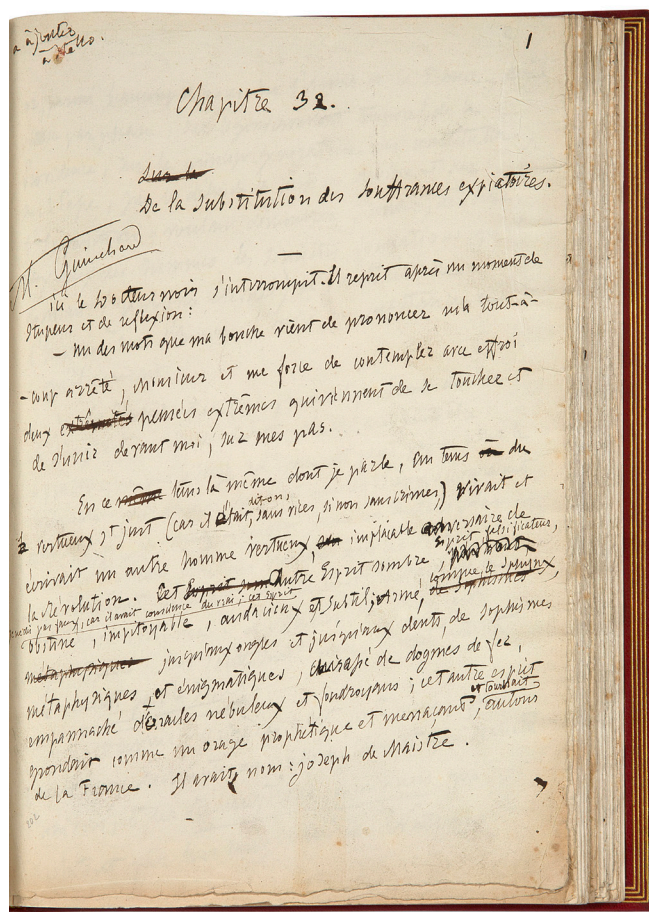 à ajouter
à Stello.
1
Chapitre 32.
Sur la
De la substitution des souffrances expiatoires.
M. Guinchard
ici le Docteur noir s'interrompit. Il reprit après un moment de
stupeur et de réflexion :
— Un des mots que ma bouche vient de prononcer m'a tout-à-
-coup arrêté, Monsieur et me force de contempler avec effroi
deux extrémités pensées extrêmes qui viennent de se toucher et
de s'unir devant moi, sur mes pas.
En ce même tems là même dont je parle, au tems du
vertueux St just (car il était, dit-on, sans vices, sinon sans crimes,) vivait et
écrivait un autre homme vertueux, implacable adversaire de
la Révolution. Cet Esprit autre Esprit sombre, Esprit falsificateur,
je ne dis pas faux, car il avait conscience du vrai ; cet Esprit
obstiné, impitoyable, audacieux et subtil, armé, comme le sphinx, de sophismes
métaphysiques jusqu'aux ongles et jusqu'aux dents, de sophismes
métaphysiques et énigmatiques, cuirassé de dogmes de fer,
empannaché d'oracles nébuleux et foudroyans ; cet autre esprit
grondait comme un orage prophétique et menaçant, et tournait autour
de la France. Il avait nom : joseph de Maistre.